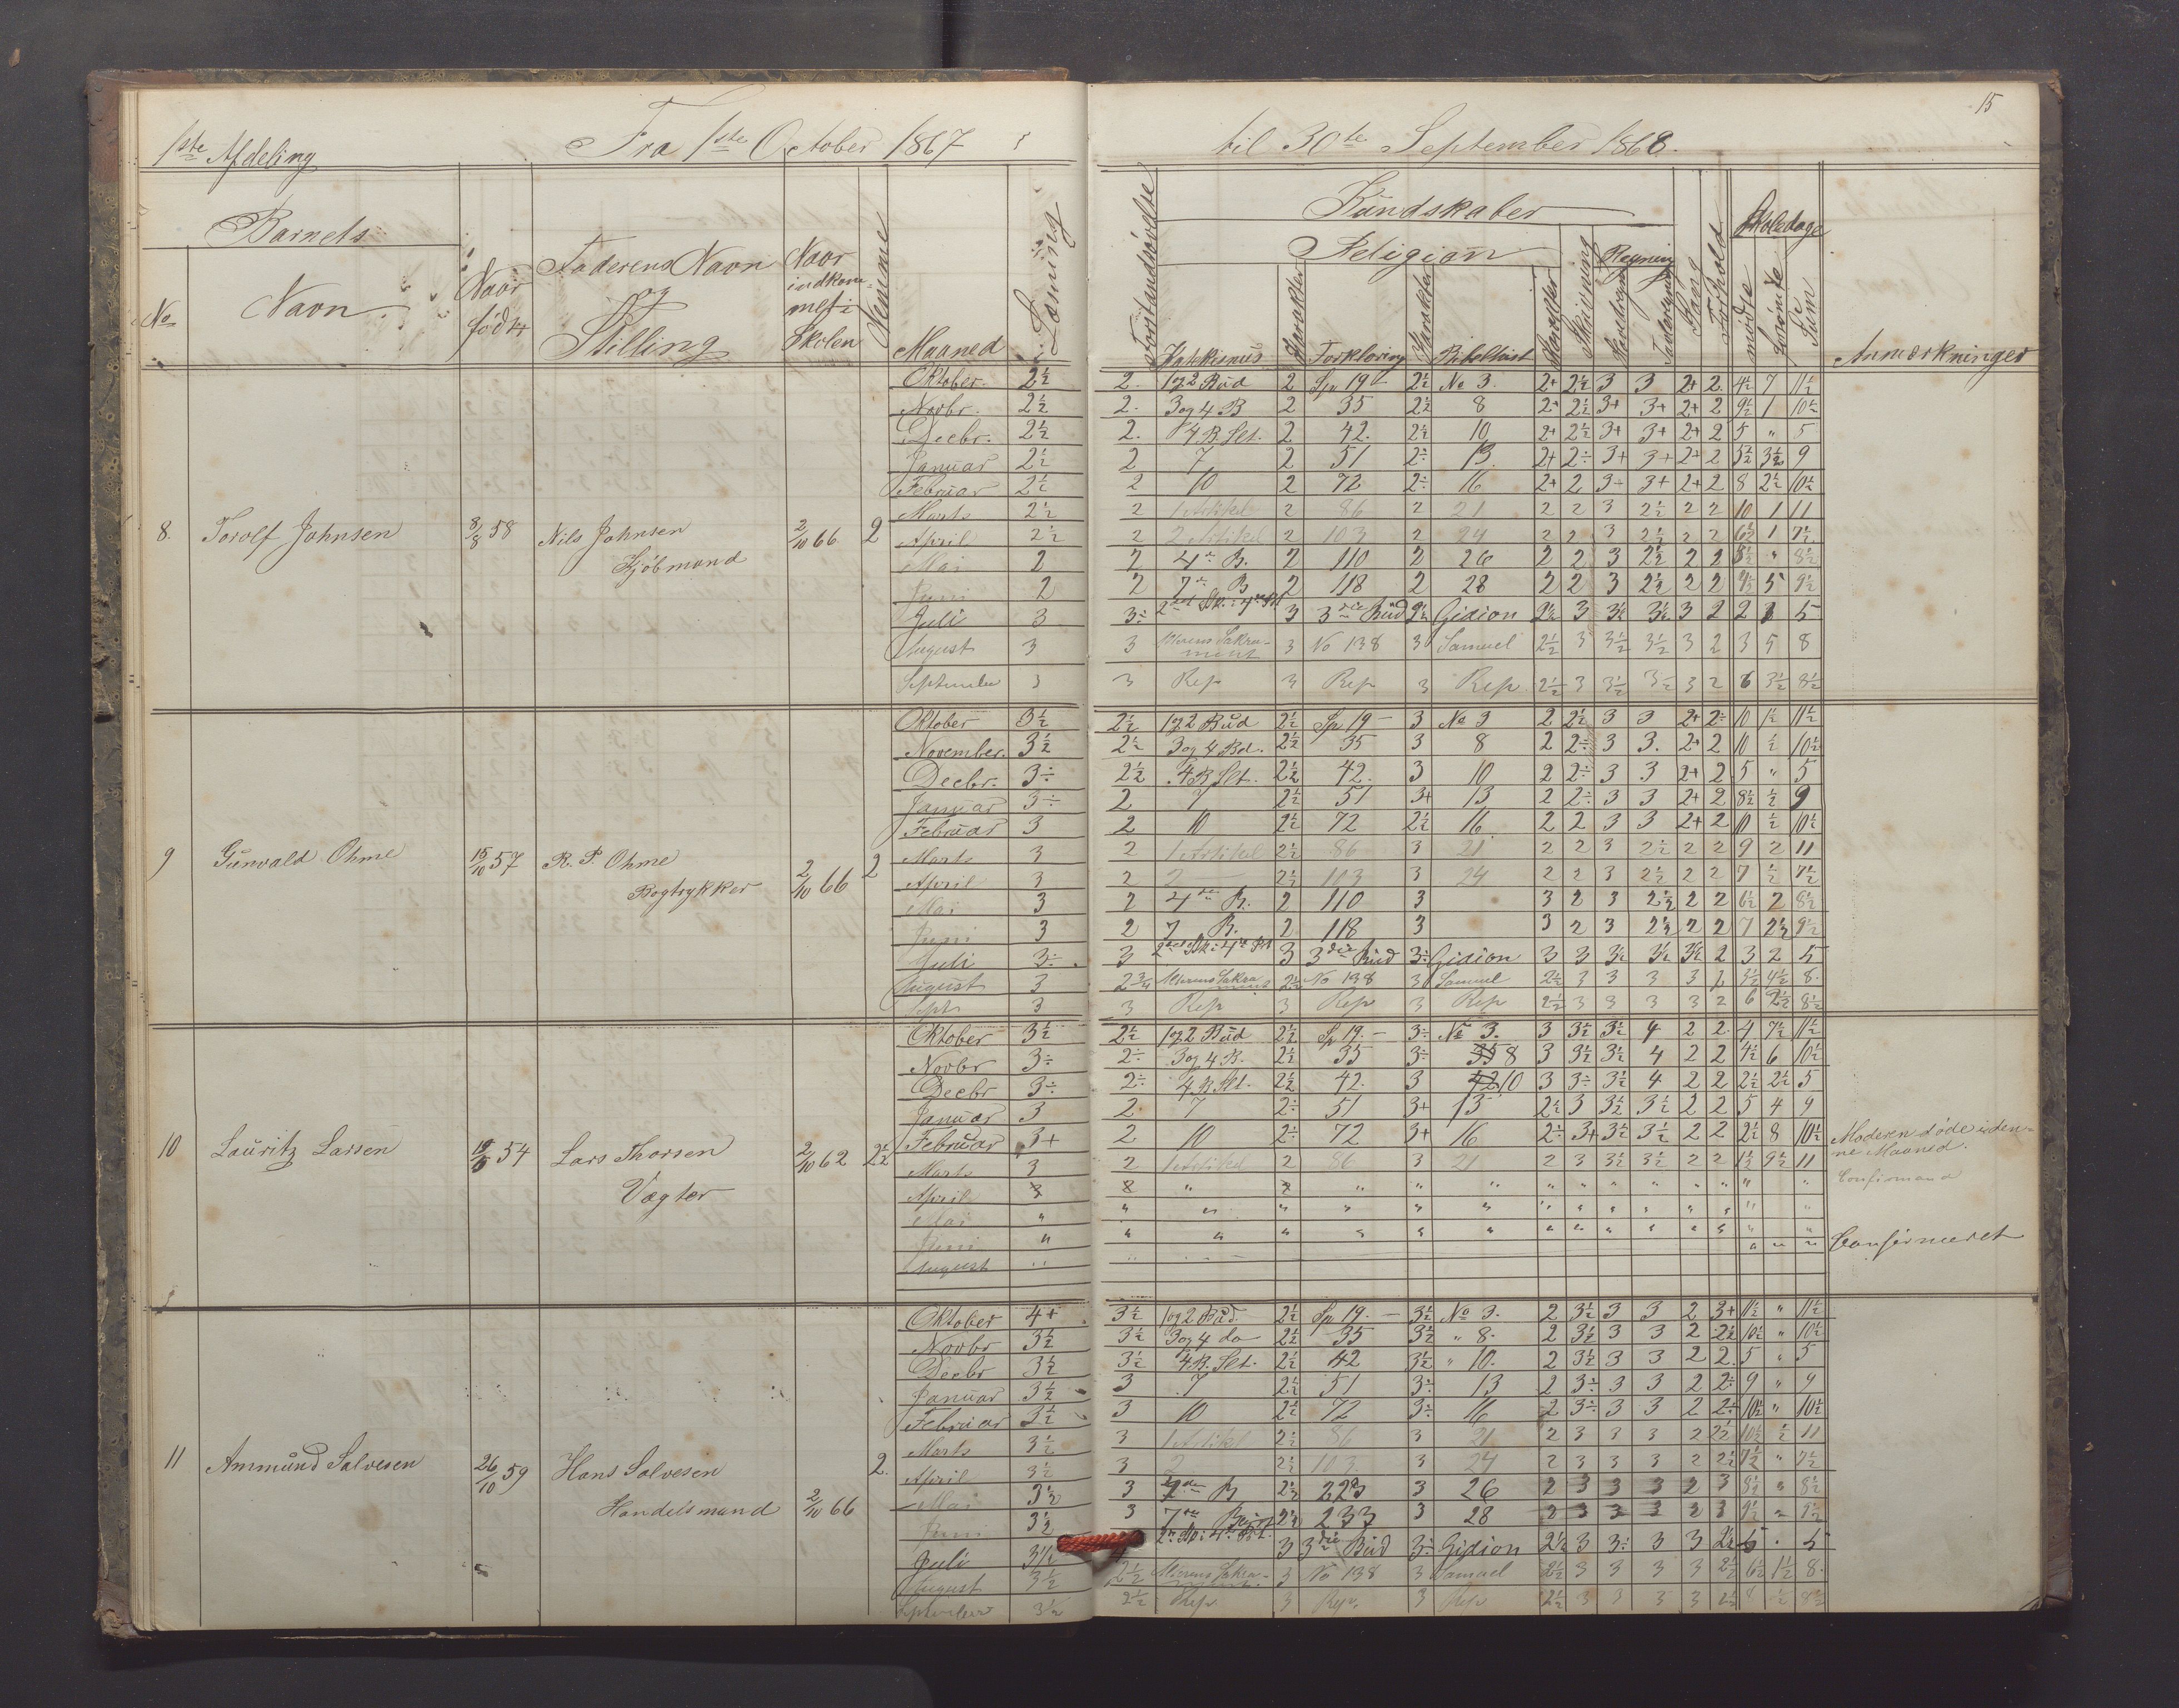 15
1ste Afdeling Fra 1ste October 1867 til 30te September 1868.
Barnets Faderens Navn og Stilling Naar indkommet i Skolen Nemme Maaned Læsning Forstandsøvelse Kundskaber Sang Forhold Skoledage Anmærkninger
No Navn. Naar født Religion Skrivning Regning mødte forsømte Sum
Katekismus Karakter Forklaring Karakter Bibelhist Karakter
Oktober. 2½ 2. 1og2 Bud 2 Sp 19 – 2½ No 3. 2+ 2½ 3 3 2+ 2. 4½ 7 11½
Novbr. 2½ 2. 3og4 B 2 35 2½ 8 2+ 2½ 3+ 3+ 2+ 2 9½ 1 10½
Decbr. 2½ 2. 4 B. Slt. 2 42. 2½ 10 2+ 2½ 3+ 3+ 2+ 2 5 " 5
Januar 2½ 2 7 2 51 2÷ 13 2+ 2÷ 3+ 3+ 2+ 2 5½ 3½ 9
Februar 2½ 2 10 2 72 2÷ 16 2+ 2 3÷ 3+ 2+ 2 8 2½ 10½
Marts 2½ 2 1 Artikel 2 86 2 21 2 2 3 2½ 2 2 10 1 11
8. Torolf Johnsen 3/8 58 Nils Johnsen 2/10 66 2 April 2½ 2 2 Artikel 2 103 2 24 2 2 3 2½ 2 2 6½ 1 7½
Kjöbmand Mai 2 2 4de B. 2 110 2 26 2 2 3 2½ 2 2 8½ " 8½
Juni 2 2 7de B 2 118 2 28 2 2 3 2½ 2 2 4½ 5 9½
Juli 3 3÷ 3 3die Bud 2½ Gidion 2½ 3 3½ 3½ 3 2 2 5
August 3 3 Alterens Sakrament 3 No 138 3 Samuel 2½ 3 3½ 3½ 3 2 3 5 8
September 3 3 Rep 3 Rep 3 Rep 2½ 3 3½ 3½ 3 2 6 3½ 8½
Oktober 3½ 2½ 1og2 Bud 2½ Sp 19 – 3 No 3 2 2½ 3 3 2+ 2÷ 10 1½ 11½
November. 3½ 2½ 3og4 Bd. 2½ 35 3 8 2 2÷ 3 3. 2+ 2 10 ½ 10½
Decbr. 3÷ 2½ 4 B Slt. 2½ 42. 3 10 2 2÷ 3 3 2+ 2. 5 " 5
Januar 3÷ 2 7 2½ 51 3+ 13 2 2÷ 3 3 2+ 2 8½ ½ 9
Februar 3 2 10 2½ 72 2½ 16 2 2 3 3 2+ 2 10 ½ 10½
9 Gunvald Ohme 15/10 57 R. P. Ohme 2/10 66 2 Marts 3 2 1 Artikel 2½ 86 3 21 2 2 3 2½ 2 2 9 2 11
Bogtrykker April 3 2 2 — 2½ 103 3 24 2 2 3 2½ 2 2 7 ½ 7½
Mai 3 2 4de B. 2 110 3 3 2 3 2½ 2 2 6½ 2 8½
Juni 3 2 7 B. 2 118 3 3 2 3 2½ 2 2 7 2½ 9½
Juli 3÷ 3 3 3die Bud 3÷ Gidion 3 3 3½ 3½ 3½ 2 3 2 5
August 3 2¾ Alterens Sakrament 2½ No 138 3 Samuel 2½ 3 3 3 3 2 3½ 4½ 8.
Sept 3 3 Rep 3 Rep 3 Rep 2½ 3 3 3 3 2 6 2½ 8½
Oktober 3½ 2½ 1og2 Bud 2½ Sp 19. – 3÷ No 3. 3 3½ 3½ 4 2 2. 4 7½ 11½
Novbr 3÷ 2÷ 3og4 B. 2½ 35 3÷ 35 8 3 3½ 3½ 4 2 2 4½ 6 10½
Decbr 3÷ 2÷ 4 B. Slt. 2½ 42. 3 42 10 3 3÷ 3½ 4 2 2 2½ 2½ 5
Januar 3 2 7 2÷ 51 3+ 13 2½ 3 3½ 3½ 2 2 5 4 9
10 Lauritz Larsen 54 Lars Thorsen 2/10 62 2½ Februar 3+ 2 10 2÷ 72 3+ 16 2÷ 3+ 3½ 3½ 2 2 2½ 8 10½ Moderen döde i denne Maaned.
Marts 3 2 1 Artikel 2 86 3 21 2 3 3½ 3½ 2 2 1½ 9½ 11
Vægter April " " " " " " " " " " " " Confirmand
Mai " " " " " " " " " " " " " " "
Juni " " " " " " " " " " " " " " " Confirmeret
August " " " " "
Oktober 4+ 3½ 1og2 Bud. 2½ Sp 19. – 3½ No 3. 2 3½ 3 3 2 3+ 11½ " 11½
Novbr 3½ 3½ 3og4 do 2½ 35 3½ " 8. 2 3½ 3 3 2 2½ 10½ " 10½
Decbr 3½ 3½ 4 B. Slt. 2½ 42 3½ " 10. 2 3½ 3 3 2 2. 5 " 5
Januar 3½ 3 7 2½ 51 3÷ 13 2 3÷ 3 3 2 2÷ 9 " 9
Februar 3½ 3 10 2½ 72 3÷ 16 2 3÷ 3 3 2 2÷ 10½ " 10½
Marts 3½ 3 1 Artikl 2½ 86 3 21 2 3 3 3 2 2½ 10½ ½ 11
11 Ammund Salvesen 26/10 59 Hans Salvesen 2. April 3½ 3 2 2½ 103 3 24 2 3 3 3 2 2½ 7½ " 7½
Handelsmand 2/10 66 Mai 3½ 3 B 2½ 223 3 26 2 3 3 3 2 3 8½ " 8½
Juni 3½ 3 7de 2½ 233 3 28 2 3 3 3 2 3 9½ " 9½
Juli 3½ 3 3die Bud 3÷ Gidion 2½ 3 3÷ 3 3 2½ 5 . 5
August 3½ 2½ Alterens Sakrament. 3 No 138 3 Samuel 2½ 3 3 3 3 2½ 6½ 1½ 8.
September 3½ 2½ Rep. 3 Rep. 3 Rep 2½ 3 3 3 3 2½ 8 ½ 8½